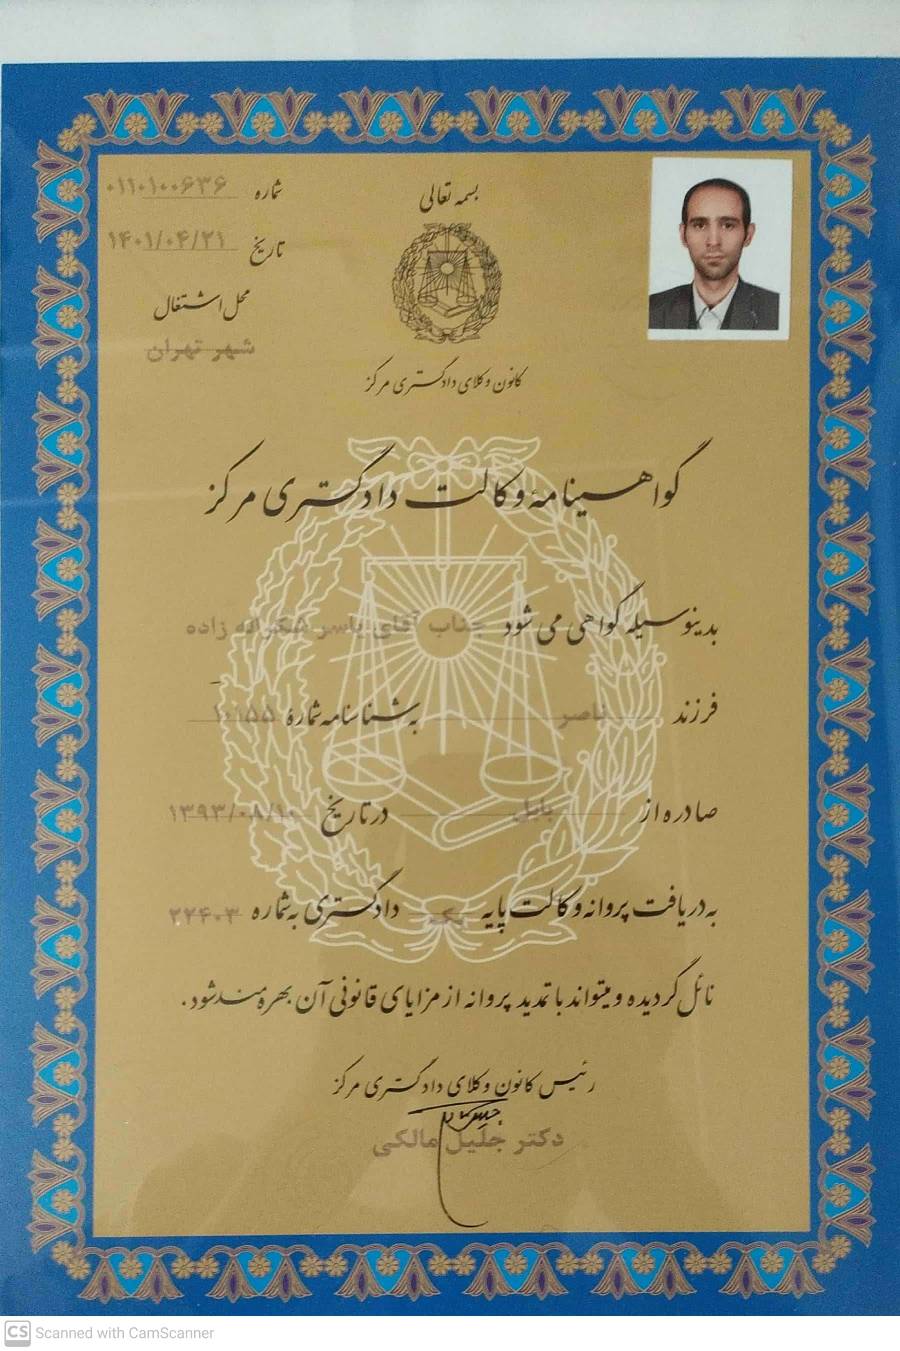 بسمه تعالی
شماره ۰۱۱۰۱۰۰۶۳۶
تاریخ ۱۴۰۱/۰۴/۲۱
محل اشتغال
شهر تهران
کانون وکلای دادگستری مرکز
گواهینامهٔ وکالت دادگستری مرکز
بدینوسیله گواهی می شود جناب آقای یاسر شکرانه زاده
فرزند ناصر به شناسنامه شمارهٔ ۱۰۱۵۵
صادره از بابل در تاریخ ۱۳۹۳/۰۸/۱۰
به دریافت پروانه وکالت پایه یکم دادگستری به شماره ۲۲۴۰۳
نائل گردیده و میتواند با تمدید پروانه از مزایای قانونی آن بهره مند شود.
رئیس کانون وکلای دادگستری مرکز
دکتر جلیل مالکی
CS Scanned with CamScanner